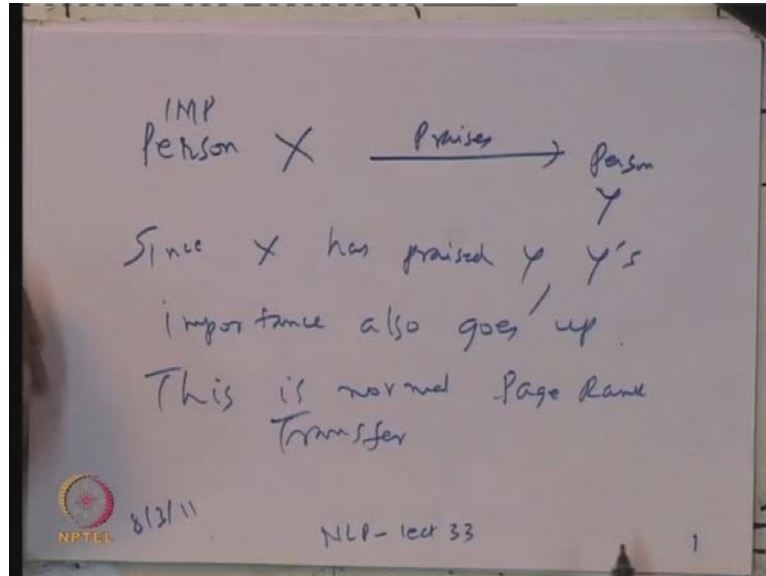 IMP
Person X Praises Person
Y
Since X has praised Y, Y's
importance also goes up.
This is normal Page Rank
Transfer
NPTEL 8/3/11 NLP-lect 33 1